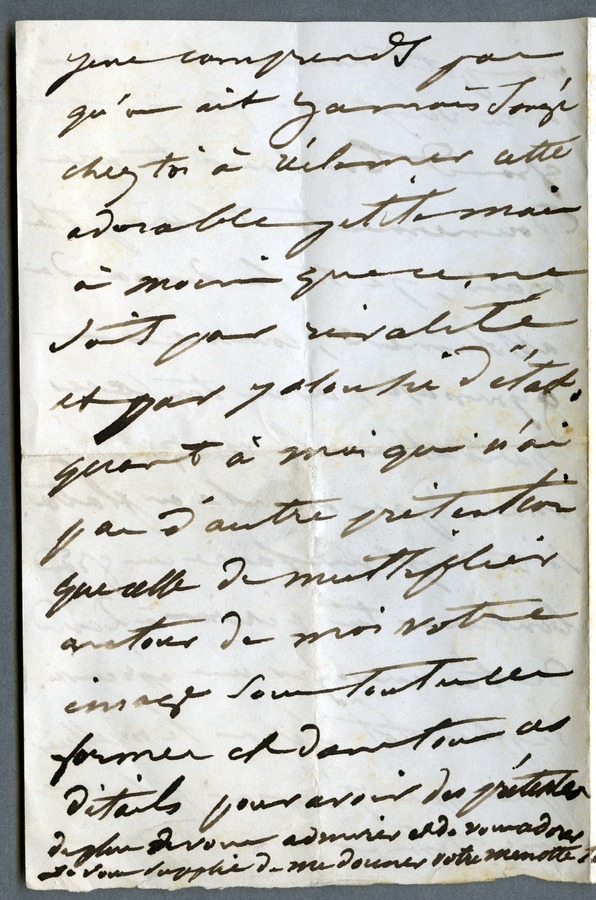 je ne comprends pas
qu'on ait jamais songé
chez toi à réclamer cette
adorable petite main
à moins que ce ne
soit par rivalité
et par jalousie d'état,
quant à moi qui n'ai
pas d'autre prétention
que celle de multiplier
autour de moi votre
image sous toutes les
formes et dans tous ces
détails pour avoir des prétextes
de plus de vous admirer et de vous adorer
je vous supplie de me donner votre menotte